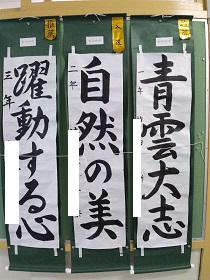 青雲大志
自然の美
二年
躍動する心
三年